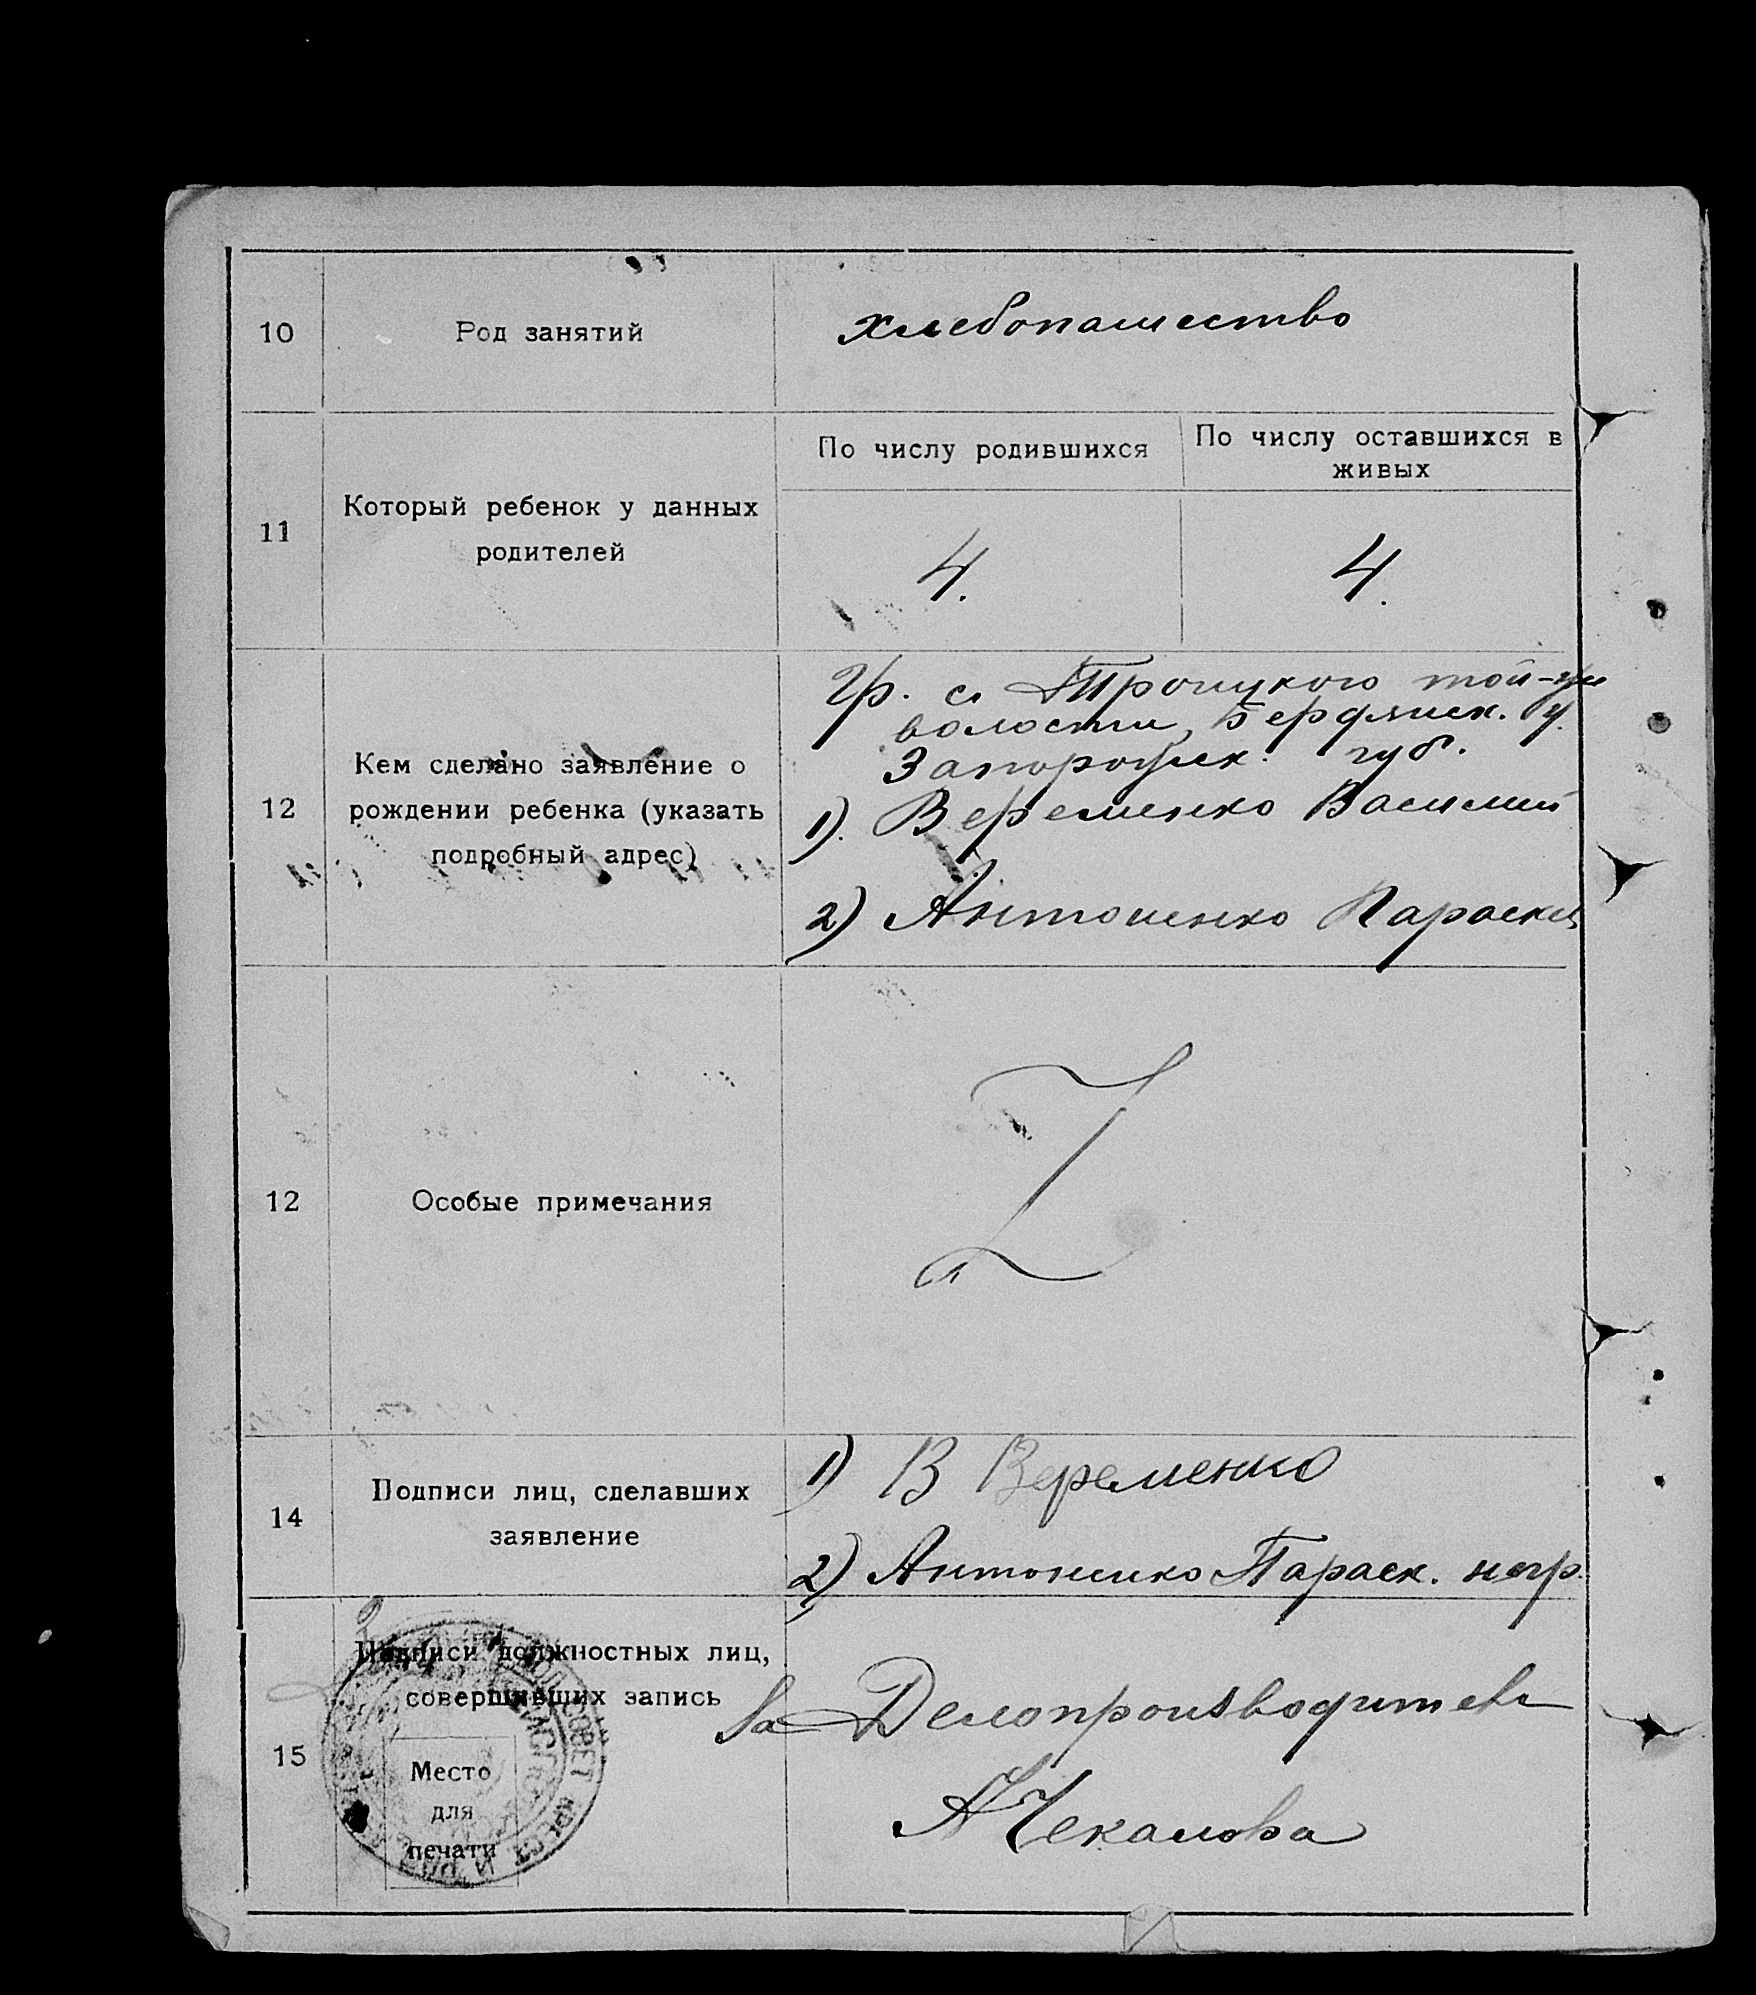 10 Род занятий хлебопашество
11 Который ребенок у данных
родителей
По числу родившихся
По числу оставшихся в
живых
4. 4.
12 Кем сделано заявление о
рождении ребенка (указать
подробный адрес)
Гр. с. Троицкого той-же
волости, Бердянск. у.
Запорожск. губ.
1). Веременко Василий
2) Антоненко Параскев
12 Особые примечания
Z
14 Подписи лиц, сделавших
заявление
1) В Веременко
2) Антоненко Параск. негр.
15 Подписи должностных лиц,
совершивших запись
Место
для
печати
За Делопроизводитель
А Чекалова
СОВЕТ КРЕСТ И